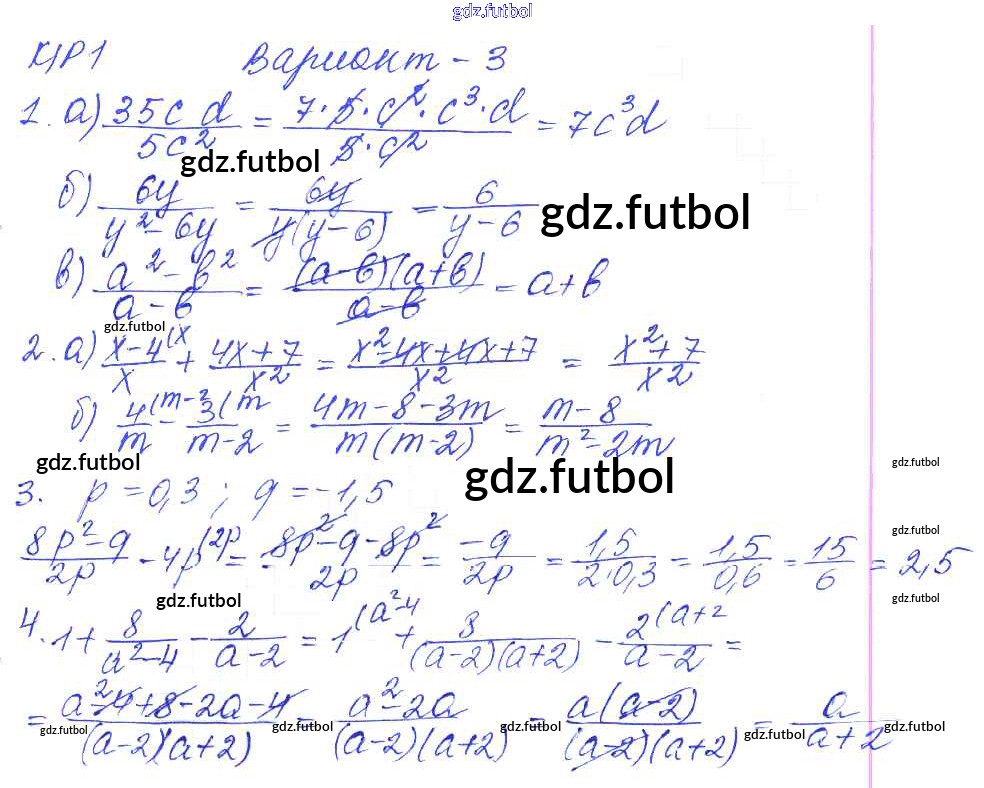 gdz.futbol
К/Р1 Вариант - 3
1. а) 35c d / 5c² = 7·5·c²·c³·d / 5·c² = 7c³d
gdz.futbol
б) 6y / y²-6y = 6y / y(y-6) = 6 / y-6
gdz.futbol
в) a²-b² / a-b = (a-b)(a+b) / a-b = a+b
gdz.futbol
2. а) x-4(x / x + 4x+7 / x² = x²-4x+4x+7 / x² = x²+7 / x²
б) 4(m-2 / m - 3(m / m-2 = 4m-8-3m / m(m-2) = m-8 / m²-2m
gdz.futbol gdz.futbol gdz.futbol
3. p=0,3; q=-1,5
gdz.futbol
8p²-q / 2p - 4p(2p = 8p²-q-8p² / 2p = -q / 2p = 1,5 / 2·0,3 = 1,5 / 0,6 = 15 / 6 = 2,5
gdz.futbol gdz.futbol
4. 1 + 8 / a²-4 - 2 / a-2 = 1(a²-4 + 8 / (a-2)(a+2) - 2(a+2 / a-2 =
= a²-4+8-2a-4 / (a-2)(a+2) = a²-2a / (a-2)(a+2) = a(a-2) / (a-2)(a+2) = a / a+2
gdz.futbol gdz.futbol gdz.futbol gdz.futbol gdz.futbol